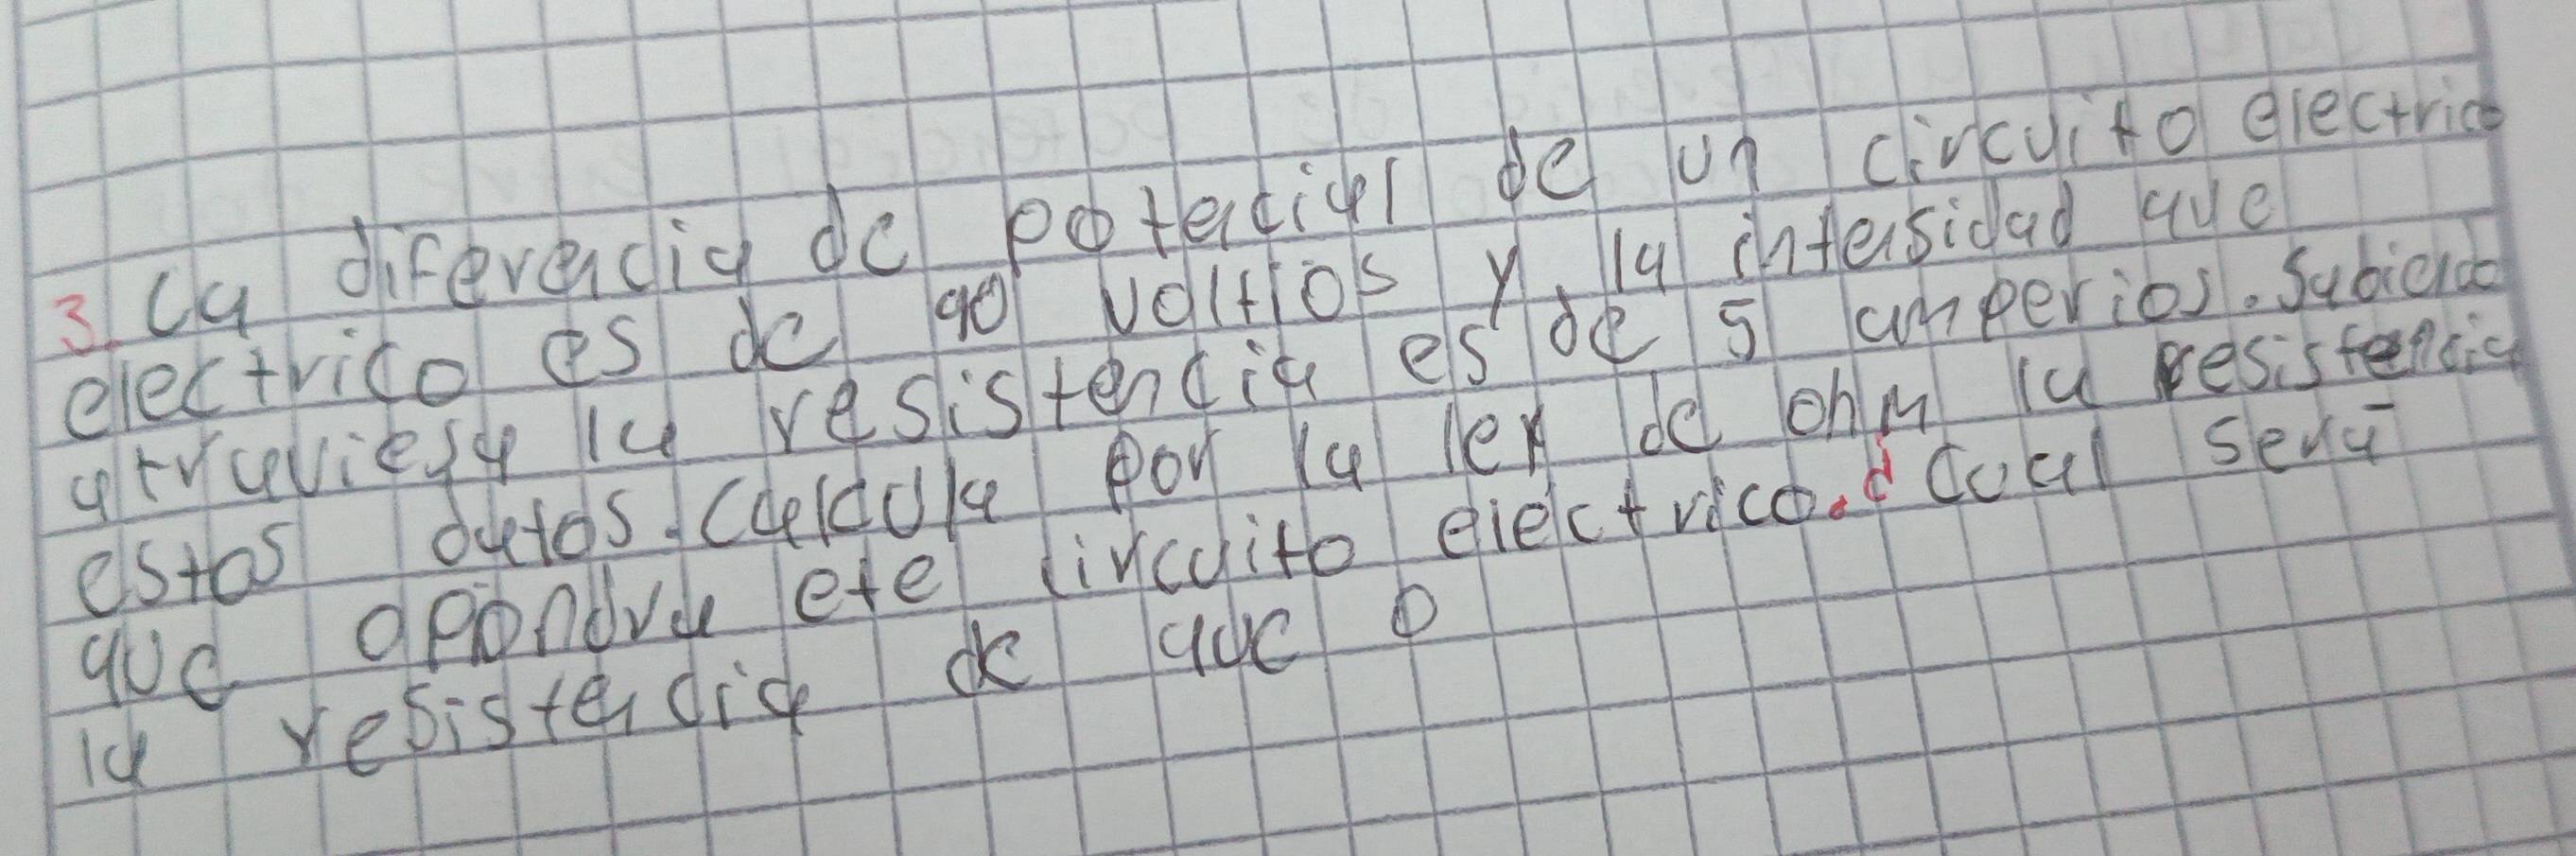 3. La diferencia de potencial de un circuito electrico
electrico es de 90 voltios y la intensidad que
atraviesa la resistencia es de 5 amperios. Sabiendo
estos datos. Calcula por la ley de ohm la resistencia
que opondra ete circuito electrico. ¿Cual será
la resistencia de que o